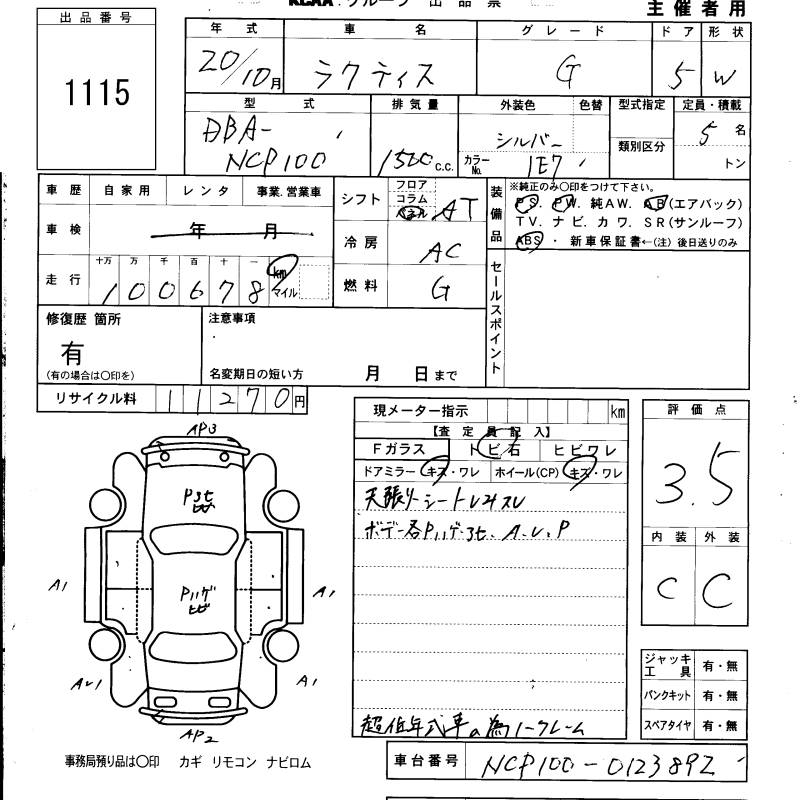 KCAA グループ 出 品 票
主催者用
出品番号
1115
年式 車名 グレード ドア 形状
20/10月 ラクティス G 5 W
型式 排気量 外装色 色替 型式指定 定員・積載
DBA-
NCP100 1500 c.c. シルバー カラーNo. 1E7 類別区分 5名 トン
車歴 自家用 レンタ 事業.営業車
車検 年 月
走行 十万 万 千 百 十 一
100678 km マイル
シフト フロア コラム パネル AT
冷房 AC
燃料 G
装備品 ※純正のみ〇印をつけて下さい。
PS. PW. 純AW. AB(エアバック)
TV. ナビ. カワ. SR(サンルーフ)
ABS ・ 新車保証書←(注) 後日送りのみ
セールスポイント
修復歴 箇所
有
(有の場合は〇印を)
注意事項
名変期日の短い方 月 日まで
リサイクル料 11270円
現メーター指示 km
【査定員記入】
Fガラス トビ石 ヒビワレ
ドアミラー キズ・ワレ ホイール(CP) キズ・ワレ
天張り シート
ボデー各Pハゲ
超低年式車の為ノークレーム
評価点
3.5
内装 外装
C C
ジャッキ工具 有・無
パンクキット 有・無
スペアタイヤ 有・無
AP3
Pハゲ
A1 A1
A1
AP2
事務局預り品は〇印 カギ リモコン ナビロム
車台番号 NCP100-0123892